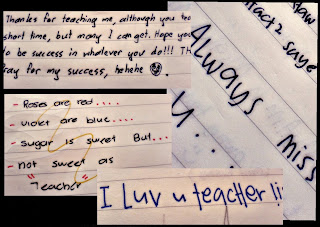 Thanks for teaching me, although you
short time, but many I can get. Hope you
to be success in whatever you do!!! Th
Pray for my success, hehehe
- Roses are red....
- violet are blue....
- sugar is sweet But...
- not sweet as
"Teacher"
I Luv u teacher!!
Always
miss
u...